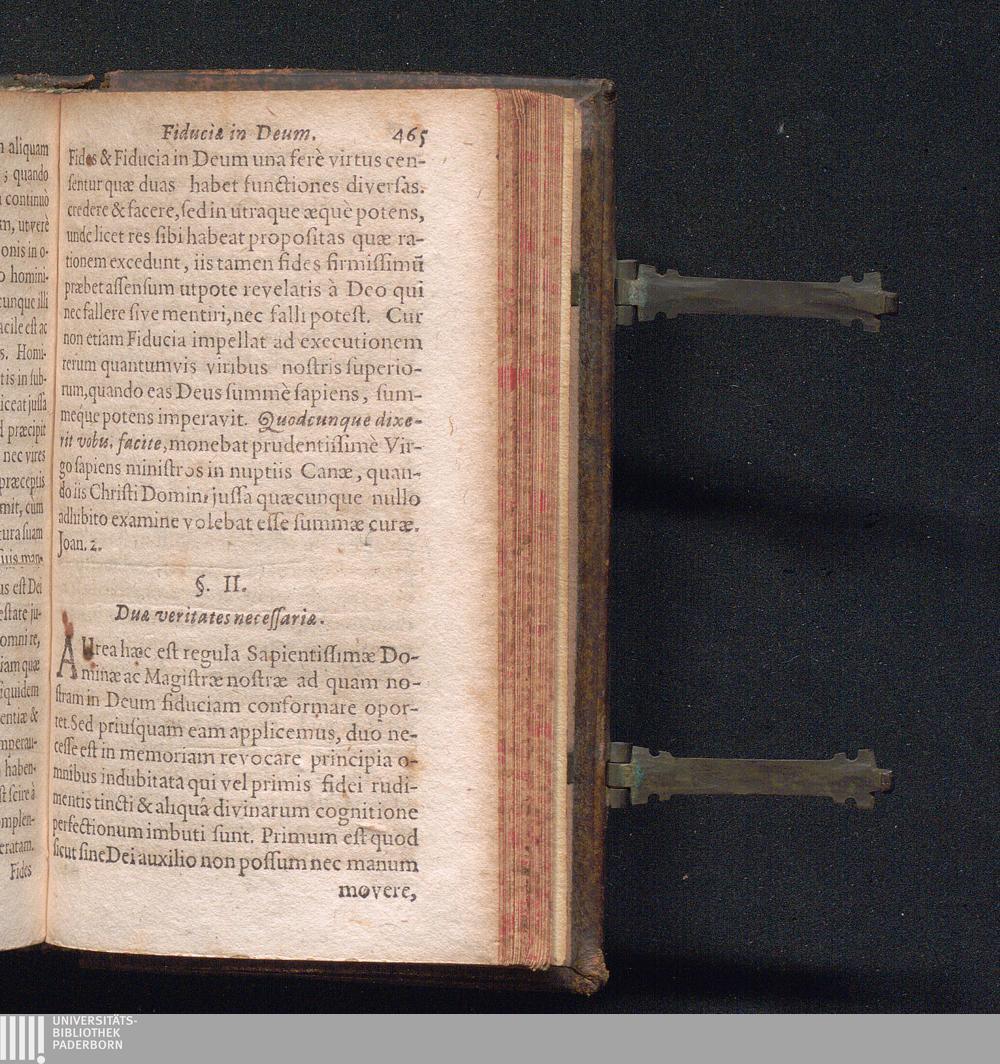 n aliquam
; quando
continuò
m, ut verè
onis in o-
o homini-
cunque illi
acile est ac
s. Homi-
tis in sub-
liceat jussa
d præcipit
nec vires
præceptis
mit, cum
tura suam
suis man-
us est Dei
estate ju-
omni re,
iam quæ
iquidem
entiæ &
mperau-
haben-
st scire à
omplen-
eratam.
Fides
Fiduciæ in Deum. 465
Fides & Fiducia in Deum una ferè virtus cen-
sentur quæ duas habet functiones diversas.
credere & facere, sed in utraque æquè potens,
unde licet res sibi habeat propositas quæ ra-
tionem excedunt, iis tamen fides firmissimũ
præbet assensum utpote revelatis à Deo qui
nec fallere sive mentiri, nec falli potest. Cur
non etiam Fiducia impellat ad executionem
rerum quantumvis viribus nostris superio-
rum, quando eas Deus summè sapiens, sum-
meque potens imperavit. Quodcunque dixe-
rit vobis, facite, monebat prudentissimè Vir-
go sapiens ministros in nuptiis Canæ, quan-
do iis Christi Domini jussa quæcunque nullo
adhibito examine volebat esse summæ curæ.
Joan. 2.
§. II.
Duæ veritates necessariæ.
AUrea hæc est regula Sapientissimæ Do-
minæ ac Magistræ nostræ ad quam no-
stram in Deum fiduciam conformare opor-
tet. Sed priusquam eam applicemus, duo ne-
cesse est in memoriam revocare principia o-
mnibus indubitata qui vel primis fidei rudi-
mentis tincti & aliquâ divinarum cognitione
perfectionum imbuti sunt. Primum est quod
sicut sine Dei auxilio non possum nec manum
movere,
UNIVERSITÄTS-
BIBLIOTHEK
PADERBORN